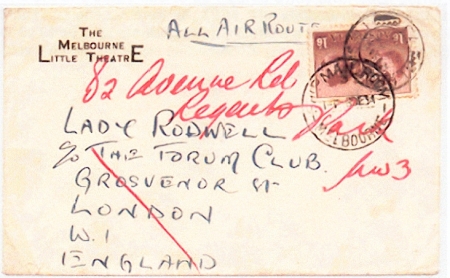 THE
MELBOURNE
LITTLE THEATRE
ALL AIR ROUTE
1/6
1/6
MAIL ROOM
MELBOURNE
82 Avenue Rd
Regents Park
NW3
LADY RODWELL
c/o THE FORUM CLUB.
GROSVENOR ST
LONDON
W.1
ENGLAND